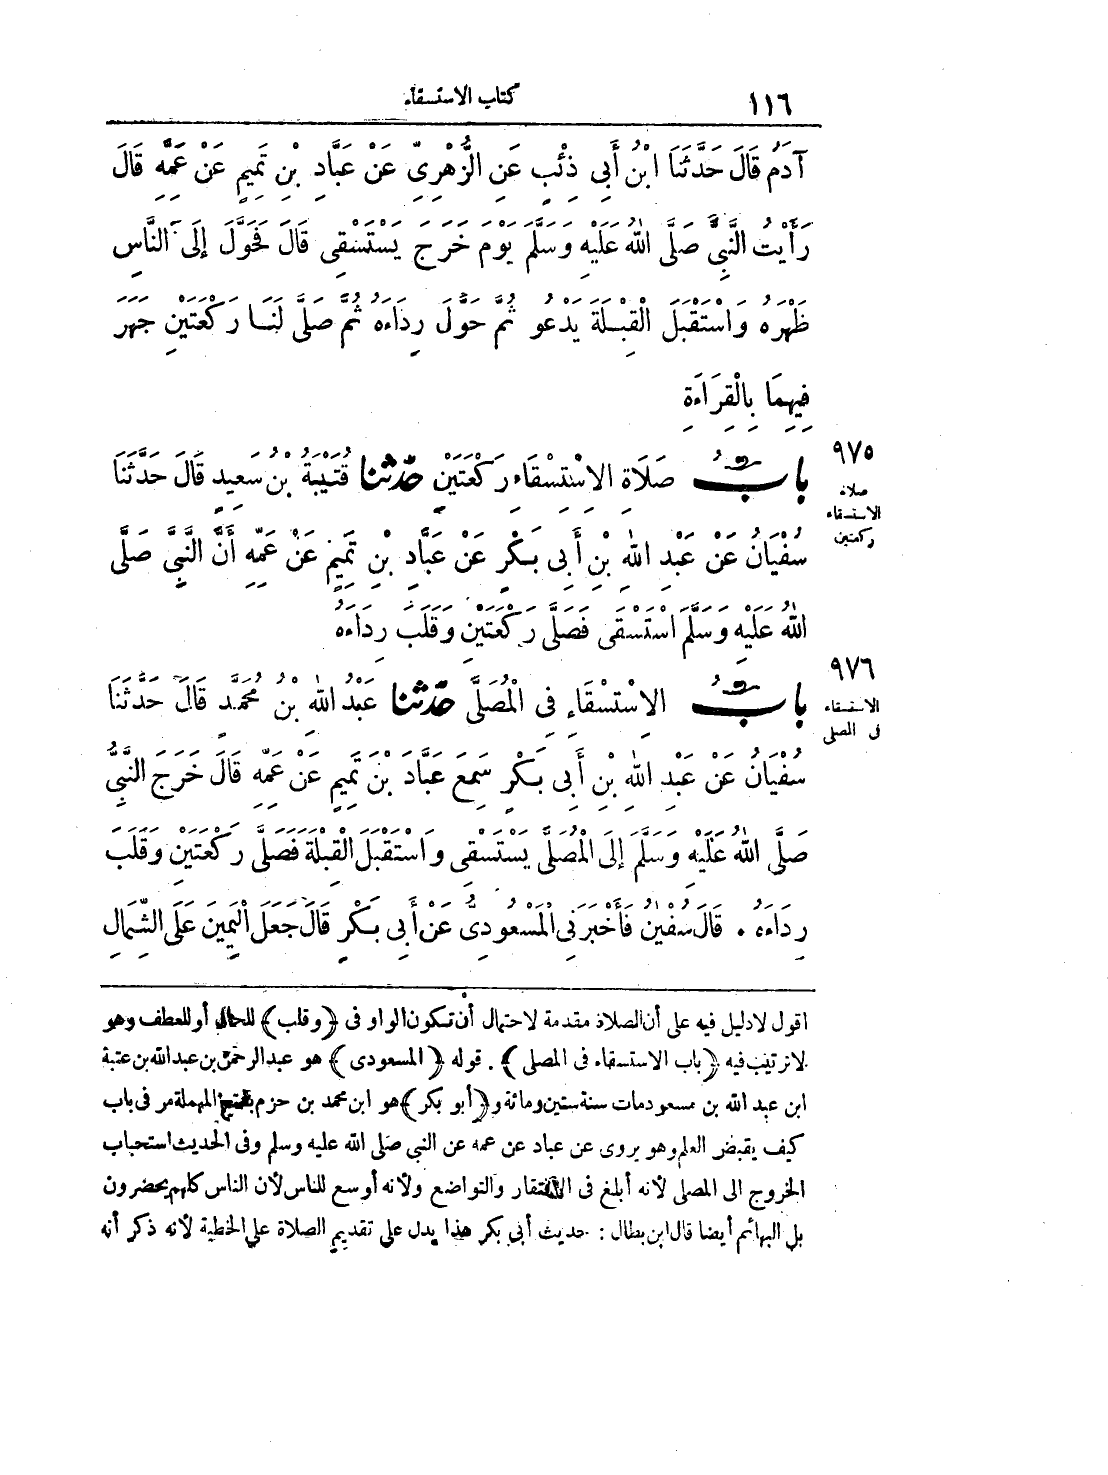 ١١٦ كتاب الاستسقاء
آدَمُ قَالَ حَدَّثَنَا ابْنُ أَبِي ذِئْبٍ عَنِ الزُّهْرِىِّ عَنْ عَبَّادِ بْنِ تَمِيمٍ عَنْ عَمِّهِ قَالَ
رَأَيْتُ النَّبِىَّ صَلَّى اللهُ عَلَيْهِ وَسَلَّمَ يَوْمَ خَرَجَ يَسْتَسْقِى قَالَ فَحَوَّلَ إِلَى النَّاسِ
ظَهْرَهُ وَاسْتَقْبَلَ الْقِبْلَةَ يَدْعُو ثُمَّ حَوَّلَ رِدَاءَهُ ثُمَّ صَلَّى لَنَا رَكْعَتَيْنِ جَهَرَ
فِيهِمَا بِالْقِرَاءَةِ
٩٧٥
صلاة
الاستسقاء
ركعتين
بابُ صَلَاةِ الاِسْتِسْقَاءِ رَكْعَتَيْنِ حَدَّثَنَا قُتَيْبَةُ بْنُ سَعِيدٍ قَالَ حَدَّثَنَا
سُفْيَانُ عَنْ عَبْدِ اللهِ بْنِ أَبِى بَكْرٍ عَنْ عَبَّادِ بْنِ تَمِيمٍ عَنْ عَمِّهِ أَنَّ النَّبِىَّ صَلَّى
اللهُ عَلَيْهِ وَسَلَّمَ اسْتَسْقَى فَصَلَّى رَكْعَتَيْنِ وَقَلَبَ رِدَاءَهُ
٩٧٦
الاستسقاء
فى المصلى
بابُ الاِسْتِسْقَاءِ فِى الْمُصَلَّى حَدَّثَنَا عَبْدُ اللهِ بْنُ مُحَمَّدٍ قَالَ حَدَّثَنَا
سُفْيَانُ عَنْ عَبْدِ اللهِ بْنِ أَبِى بَكْرٍ سَمِعَ عَبَّادَ بْنَ تَمِيمٍ عَنْ عَمِّهِ قَالَ خَرَجَ النَّبِىُّ
صَلَّى اللهُ عَلَيْهِ وَسَلَّمَ إِلَى الْمُصَلَّى يَسْتَسْقِى وَاسْتَقْبَلَ الْقِبْلَةَ فَصَلَّى رَكْعَتَيْنِ وَقَلَبَ
رِدَاءَهُ . قَالَ سُفْيَنُ فَأَخْبَرَنِى الْمَسْعُودِىُّ عَنْ أَبِى بَكْرٍ قَالَ جَعَلَ الْيَمِينَ عَلَى الشِّمَالِ
اقول لا دليل فيه على أن الصلاة مقدمة لاحتمال أن تكون الواو فى ﴿وقلب﴾ للحال أو للعطف وهو
لا ترتيب فيه ﴿باب الاستسقاء فى المصلى﴾ . قوله ﴿المسعودى﴾ هو عبد الرحمن بن عبد الله بن عتبة
ابن عبد الله بن مسعود مات سنة ستين ومائة و﴿أبو بكر﴾ هو ابن محمد بن حزم بفتح المهملة مر فى باب
كيف يقبض العلم وهو يروى عن عباد عن عمه عن النبي صلى الله عليه وسلم وفى الحديث استحباب
الخروج الى المصلى لأنه أبلغ فى الافتقار والتواضع ولأنه أوسع للناس لأن الناس كلهم يحضرون
بل البهائم أيضا قال ابن بطال : حديث أبى بكر هذا يدل على تقديم الصلاة على الخطبة لأنه ذكر أنه